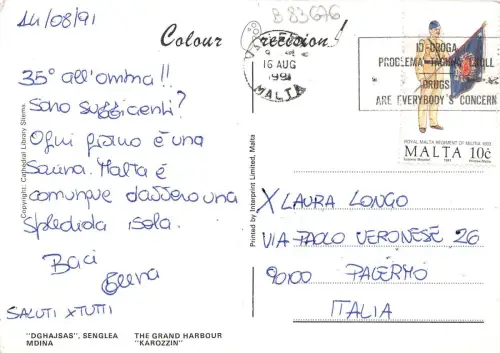 14/08/91
B 83676
Colour Precision
16 AUG
1991
MALTA
ID-DROGA
PROBLEMA TAGĦNA LKOLL
DRUGS
ARE EVERYBODY'S CONCERN
ROYAL MALTA REGIMENT OF MILITIA 1893
MALTA 10c
1991
35° all'ombra!!
Sono sufficienti?
Ogni giorno è una
sauna. Malta è
comunque davvero una
splendida isola.
Baci
Elena
SALUTI XTUTTI
Copyright: Cathedral Library Sliema.
Printed by Interprint Limited, Malta
X LAURA LONGO
VIA PAOLO VERONESE 26
90100 PALERMO
ITALIA
"DGHAJSAS", SENGLEA THE GRAND HARBOUR
MDINA "KAROZZIN"